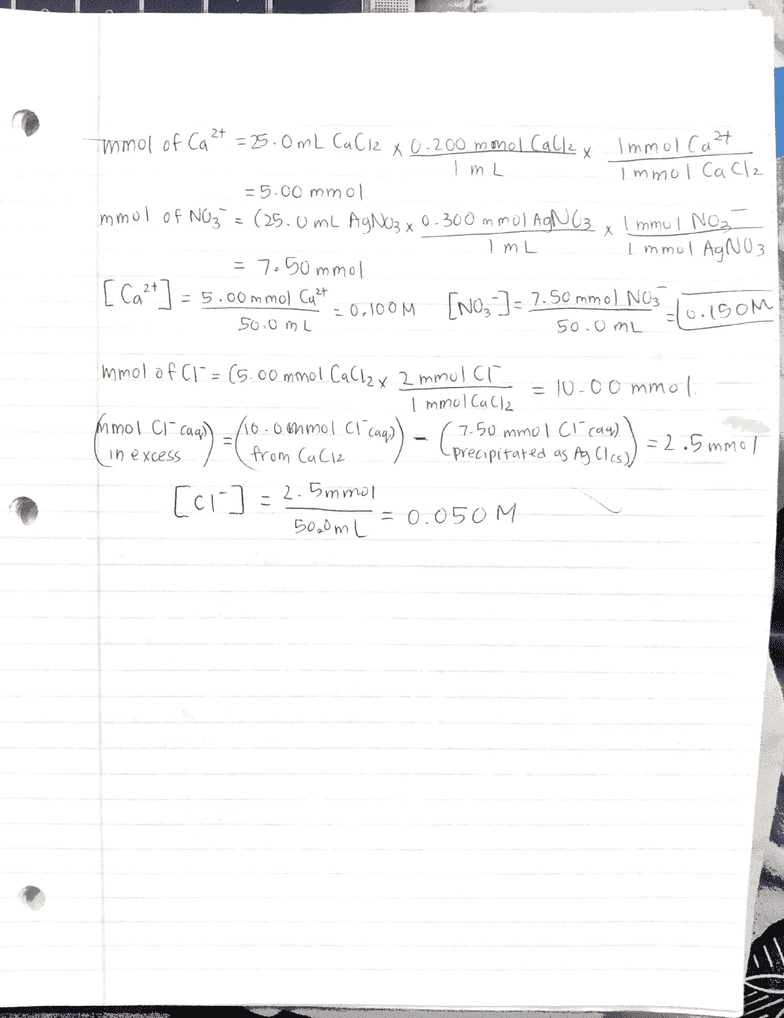 mmol of Ca²⁺ = 25.0 mL CaCl2 x 0.200 mmol CaCl2 / 1 mL x 1 mmol Ca²⁺ / 1 mmol CaCl2
= 5.00 mmol
mmol of NO3⁻ = (25.0 mL AgNO3 x 0.300 mmol AgNO3 / 1 mL x 1 mmol NO3⁻ / 1 mmol AgNO3
= 7.50 mmol
[Ca²⁺] = 5.00 mmol Ca²⁺ / 50.0 mL = 0.100M [NO3⁻] = 7.50 mmol NO3⁻ / 50.0 mL = 0.150M
mmol of Cl⁻ = (5.00 mmol CaCl2 x 2 mmol Cl⁻ / 1 mmol CaCl2 = 10.00 mmol
(mmol Cl⁻(aq) in excess) = (10.0 mmol Cl⁻(aq) from CaCl2) - (7.50 mmol Cl⁻(aq) precipitated as AgCl(s)) = 2.5 mmol
[Cl⁻] = 2.5 mmol / 50.0 mL = 0.050 M